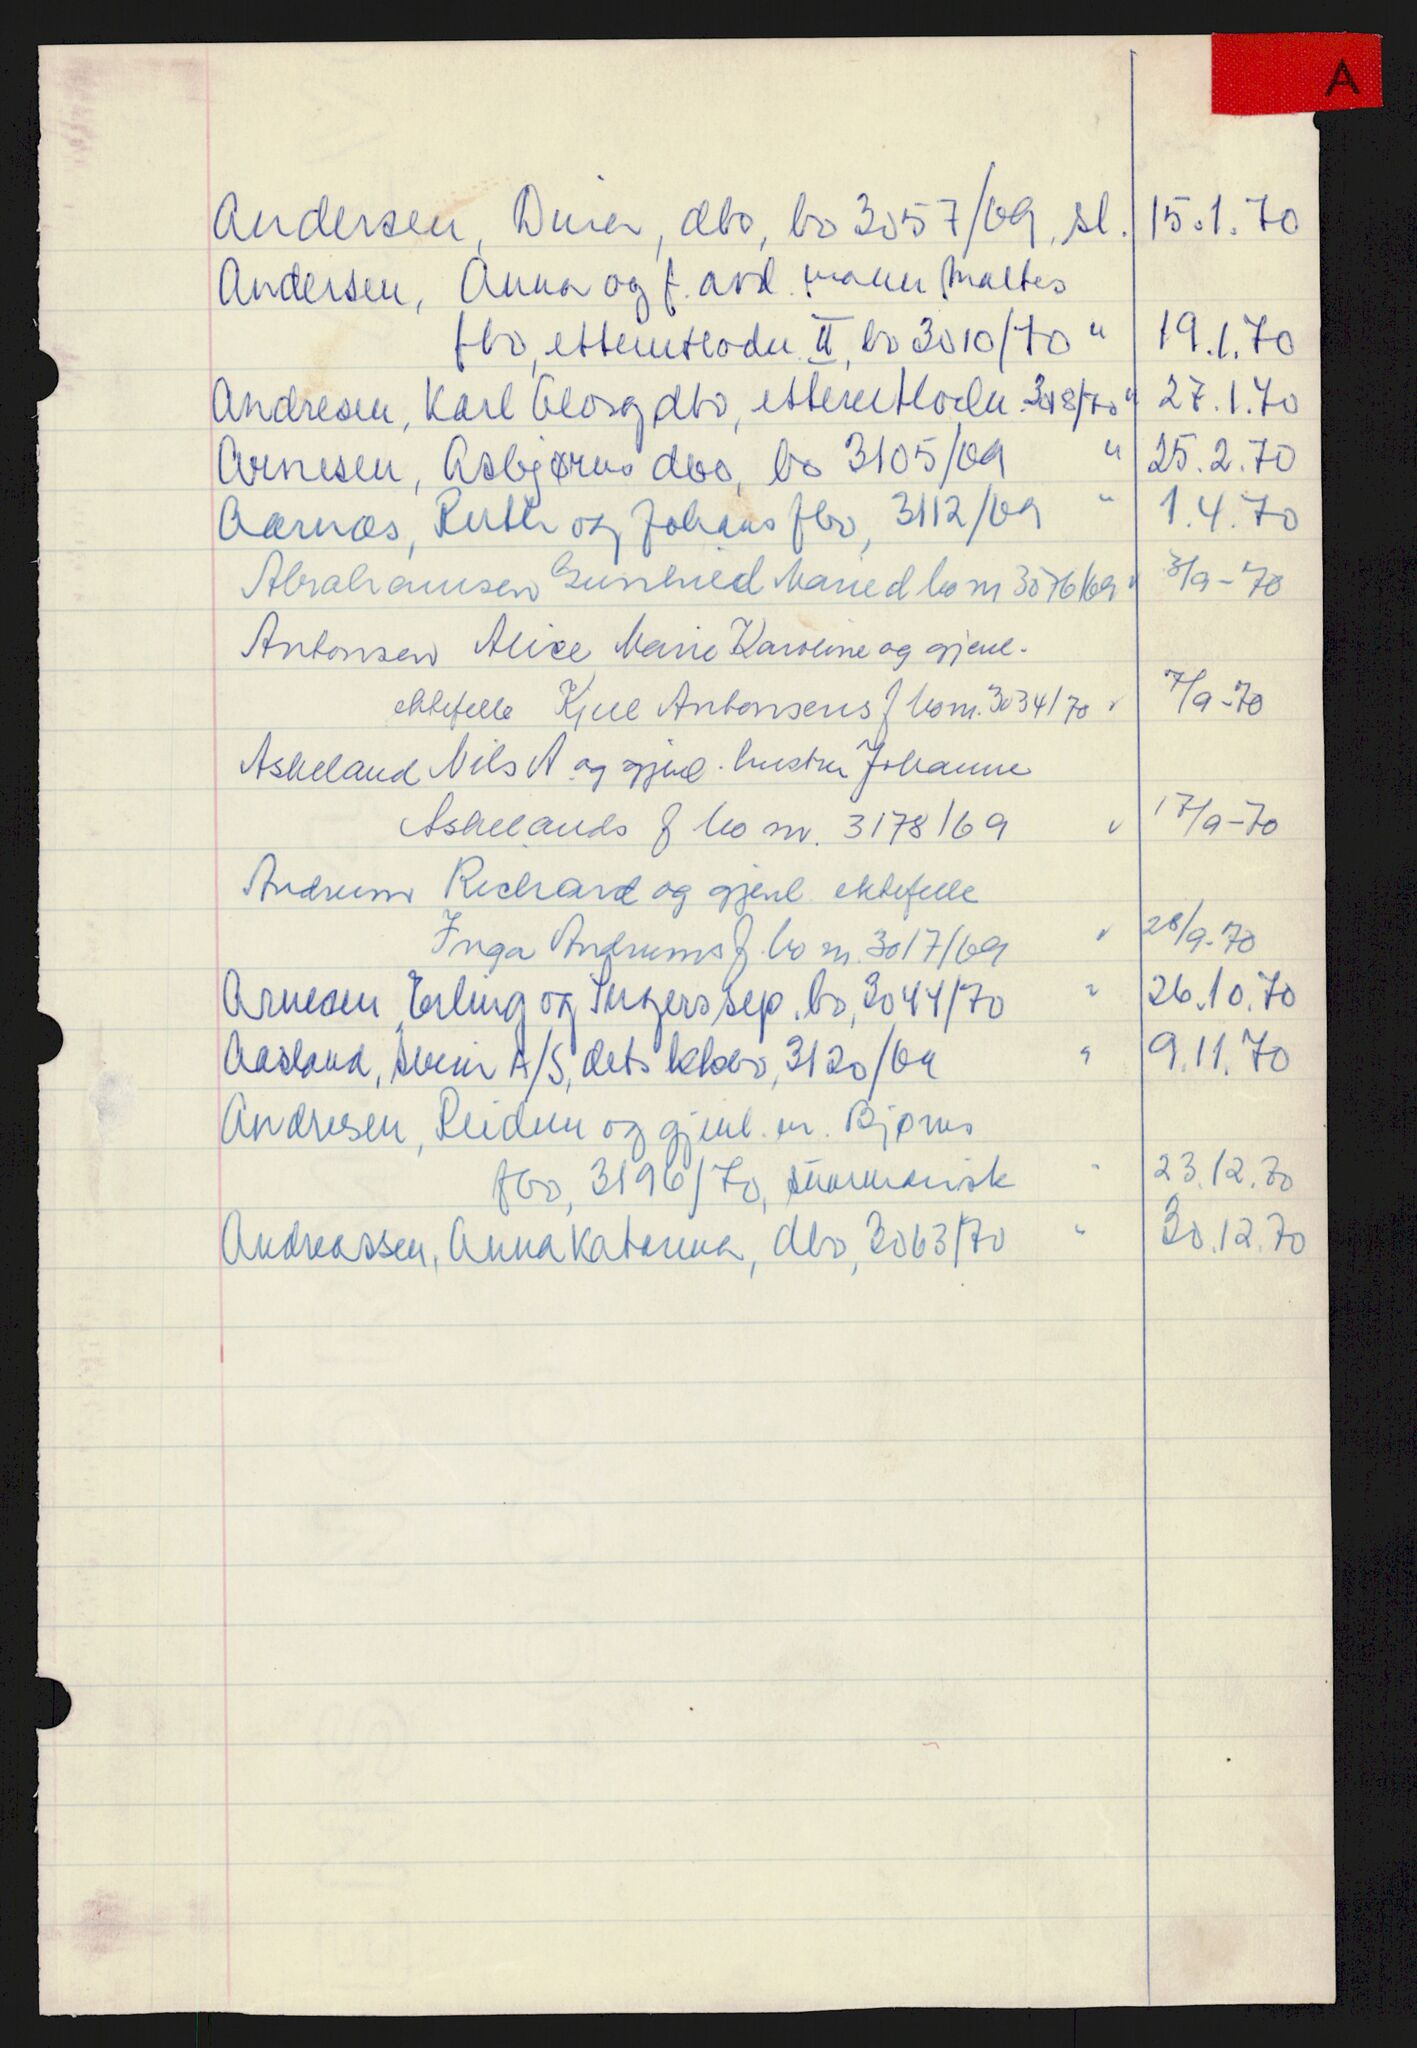 A
Andersen, dbo, bo 3057/69, sl. 15.1.70
Andersen, Anna og f. avd. mann Maltes
fbo, etterutlodn. II, bo 3010/70 " 19.1.70
Andresen, Karl Georg dbo, etterutlodn. 3018/70 " 27.1.70
Arnesen, Asbjørns dbo, bo 3105/69 " 25.2.70
Aarnæs, Ruth og Johans fbo, 3112/69 " 1.4.70
Abrahamsen Gunhild Marie d bo nr 3076/69 " 3/9-70
Antonsen Alice Marie Karoline og gjenl.
ektefelle Kjell Antonsens f bo nr. 3034/70 " 7/9-70
Askeland Nils A og gjenl. hustru Johanne
Askelands f bo nr. 3178/69 " 17/9-70
Andrums Richard og gjenl ektefelle
Inga Andrums f. bo nr. 3017/69 " 28/9-70
Arnesen, Erling og Ingers sep. bo, 3044/70 " 26.10.70
Aasland, Svein A/S, dets kkbo, 3120/69 " 9.11.70
Andresen, Reidun og gjenl. m. Bjørns
fbo, 3196/70, summarisk " 23.12.70
Andreassen, Anna Katarina, dbo, 3063/70 " 30.12.70